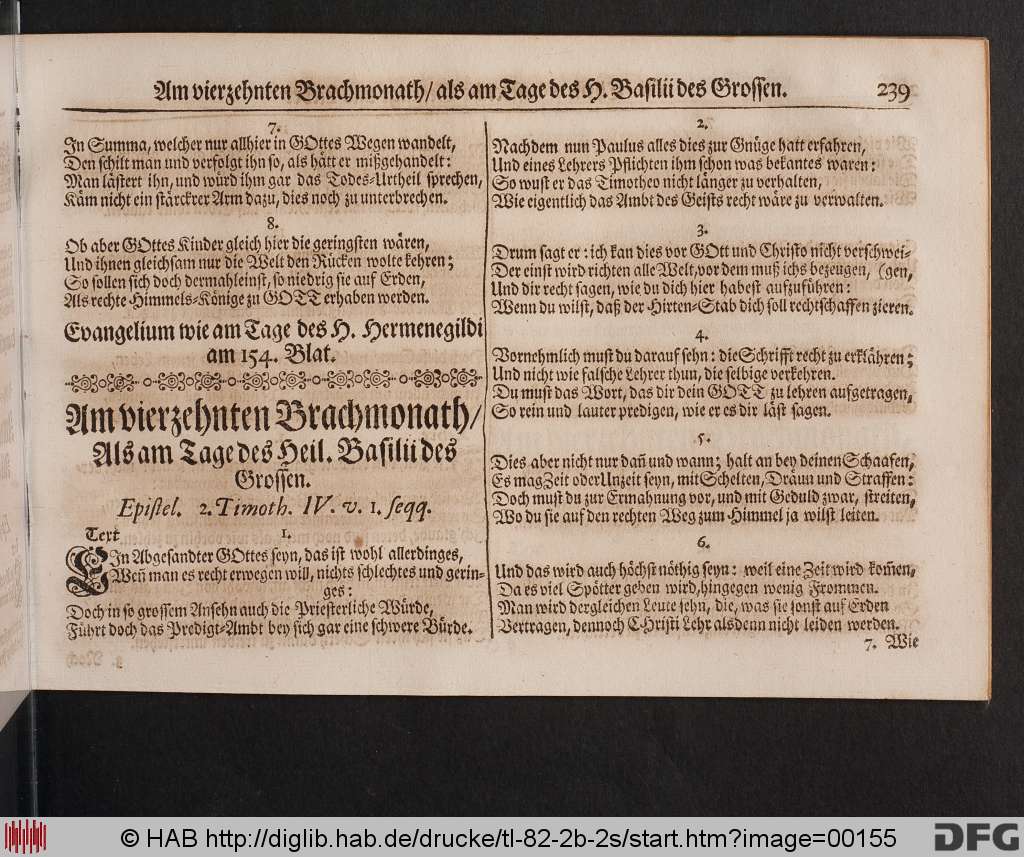 Am vierzehnten Brachmonath/ als am Tage des H. Basilii des Grossen. 239
7.
In Summa, welcher nur allhier in GOttes Wegen wandelt,
Den schilt man und verfolgt ihn so, als hätt er mißgehandelt:
Man lästert ihn, und würd ihm gar das Todes-Urtheil sprechen,
Käm nicht ein stärckrer Arm dazu, dies noch zu unterbrechen.
8.
Ob aber GOttes Kinder gleich hier die geringsten wären,
Und ihnen gleichsam nur die Welt den Rücken wolte kehren;
So sollen sich doch dermahleinst, so niedrig sie auf Erden,
Als rechte Himmels-Könige zu GOTT erhaben werden.
Evangelium wie am Tage des H. Hermenegildi
am 154. Blat.
Am vierzehnten Brachmonath/
Als am Tage des Heil. Basilii des
Grossen.
Epistel. 2. Timoth. IV. v. 1. seqq.
Text 1.
EIn Abgesandter GOttes seyn, das ist wohl allerdinges,
Weñ man es recht erwegen will, nichts schlechtes und gerin-
ges:
Doch in so grossem Ansehn auch die Priesterliche Würde,
Führt doch das Predigt-Ambt bey sich gar eine schwere Bürde.
2.
Nachdem nun Paulus alles dies zur Gnüge hatt erfahren,
Und eines Lehrers Pflichten ihm schon was bekantes waren:
So wust er das Timotheo nicht länger zu verhalten,
Wie eigentlich das Ambt des Geists recht wäre zu verwalten.
3.
Drum sagt er: ich kan dies vor GOtt und Christo nicht verschwei-
Der einst wird richten alle Welt, vor dem muß ichs bezeugen, (gen,
Und dir recht sagen, wie du dich hier habest aufzuführen:
Wenn du wilst, daß der Hirten-Stab dich soll rechtschaffen zieren.
4.
Vornehmlich must du darauf sehn: die Schrifft recht zu erklähren;
Und nicht wie falsche Lehrer thun, die selbige verkehren.
Du must das Wort, das dir dein GOTT zu lehren aufgetragen,
So rein und lauter predigen, wie er es dir läst sagen.
5.
Dies aber nicht nur dañ und wann; halt an bey deinen Schaafen,
Es mag Zeit oder Unzeit seyn, mit Schelten, Dräun und Straffen:
Doch must du zur Ermahnung vor, und mit Geduld zwar, streiten,
Wo du sie auf den rechten Weg zum Himmel ja wilst leiten.
6.
Und das wird auch höchst nöthig seyn: weil eine Zeit wird kom̃en,
Da es viel Spötter geben wird, hingegen wenig Frommen.
Man wird dergleichen Leute sehn, die, was sie sonst auf Erden
Vertragen, dennoch CHristi Lehr alsdenn nicht leiden werden.
7. Wie
© HAB http://diglib.hab.de/drucke/tl-82-2b-2s/start.htm?image=00155
DFG